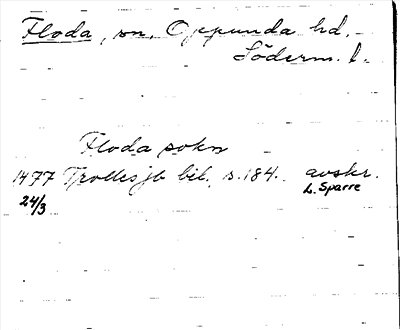 Floda, sn, Oppunda hd,
Söderm. l.
Floda sokn
1477 Trollesjb bil. s. 184. avskr.
24/3 L. Sparre